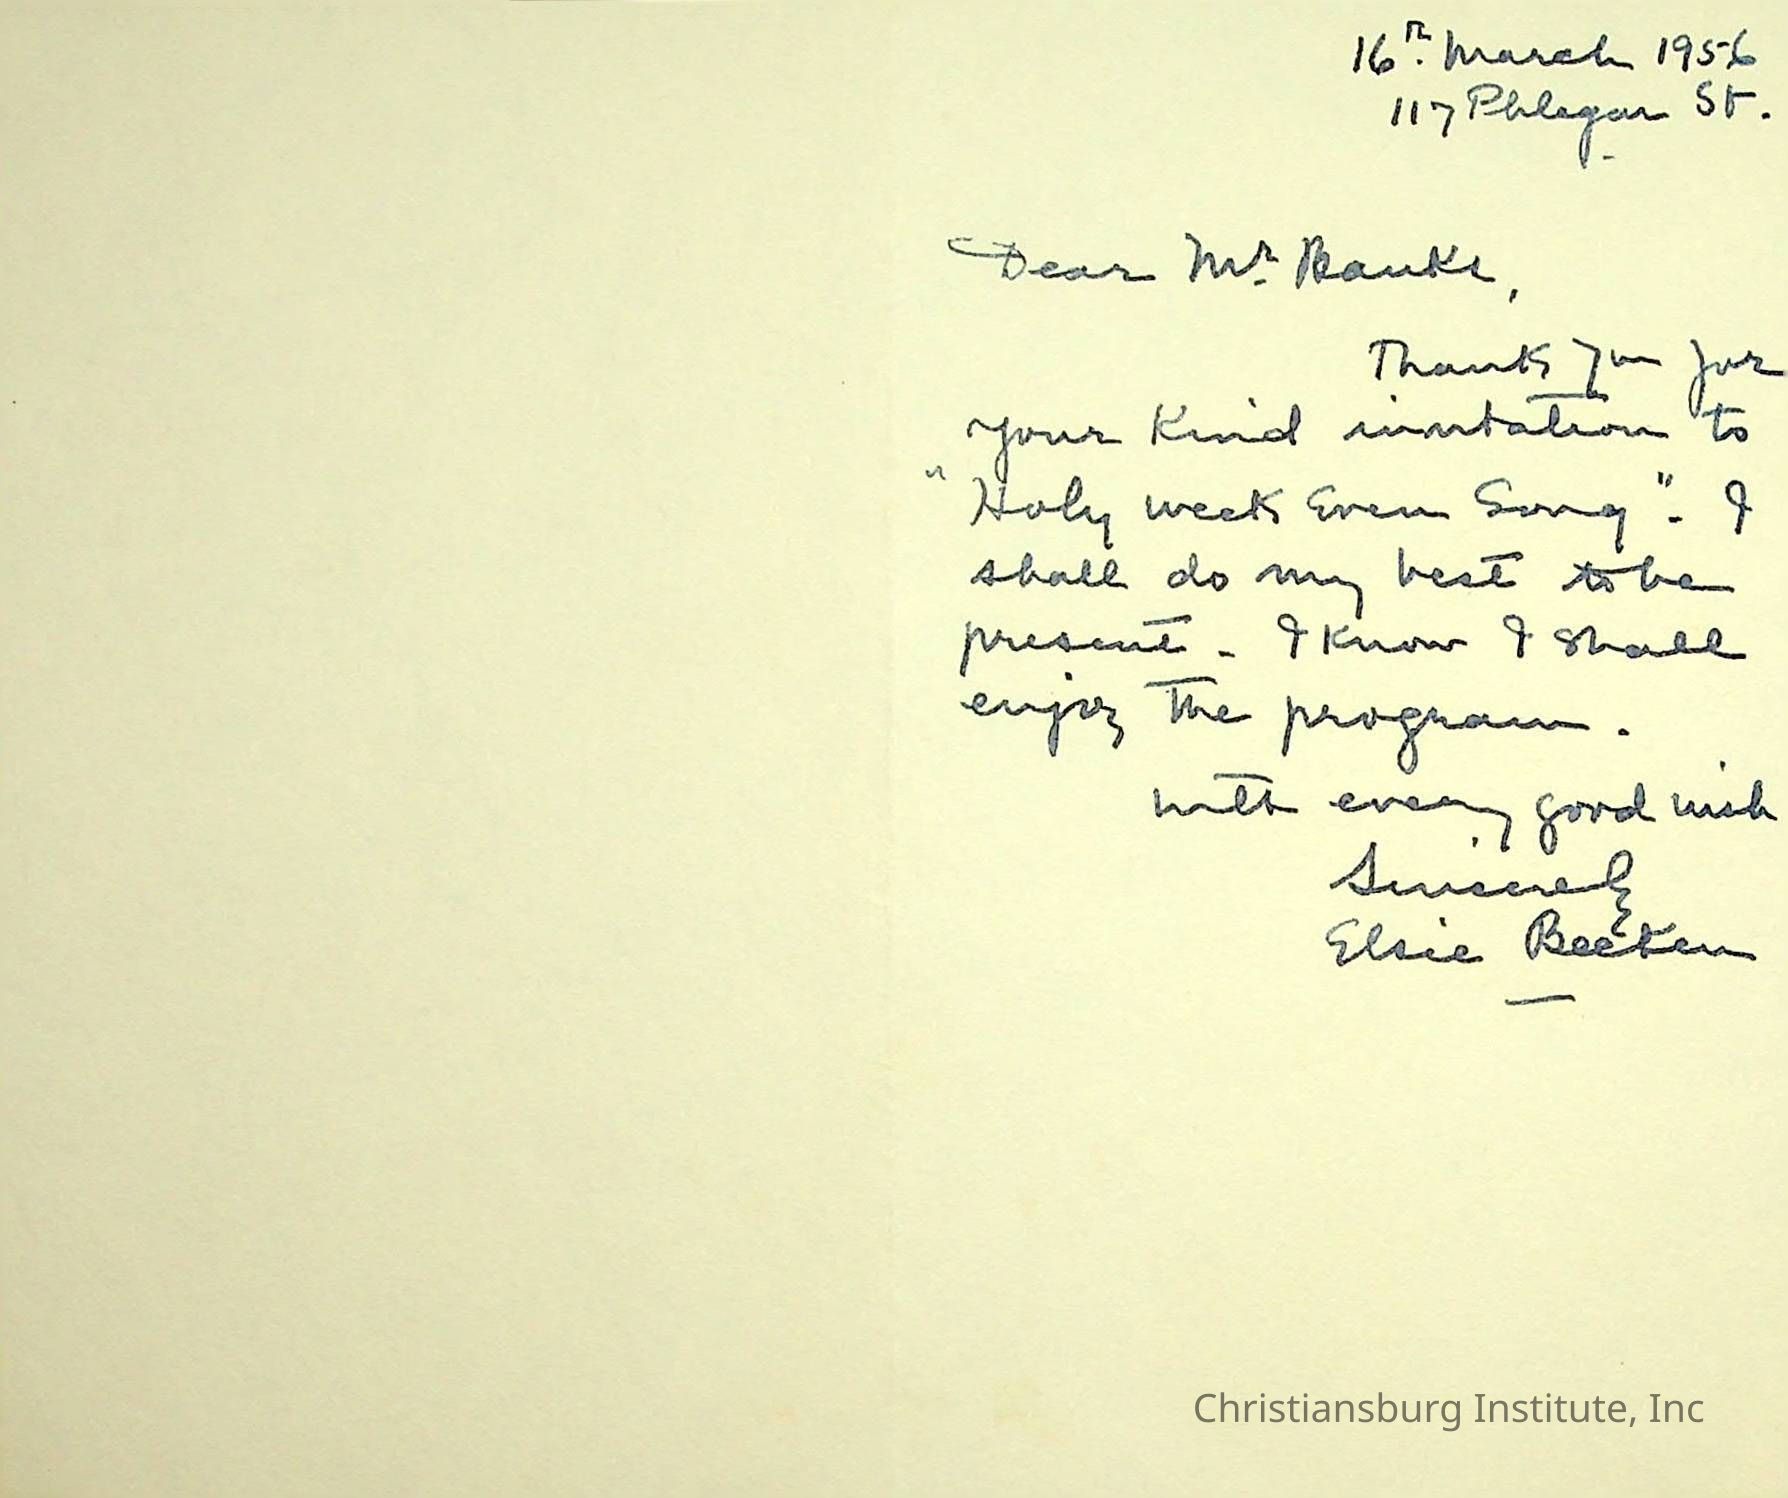 16th. March 1956
117 Phlegar St.
Dear Mr. Banks,
Thank you for
your kind invitation to
"Holy week Even Song". I
shall do my best to be
present. I know I shall
enjoy the program.
with every good wish
Sincerely
Elsie Beeken
Christiansburg Institute, Inc